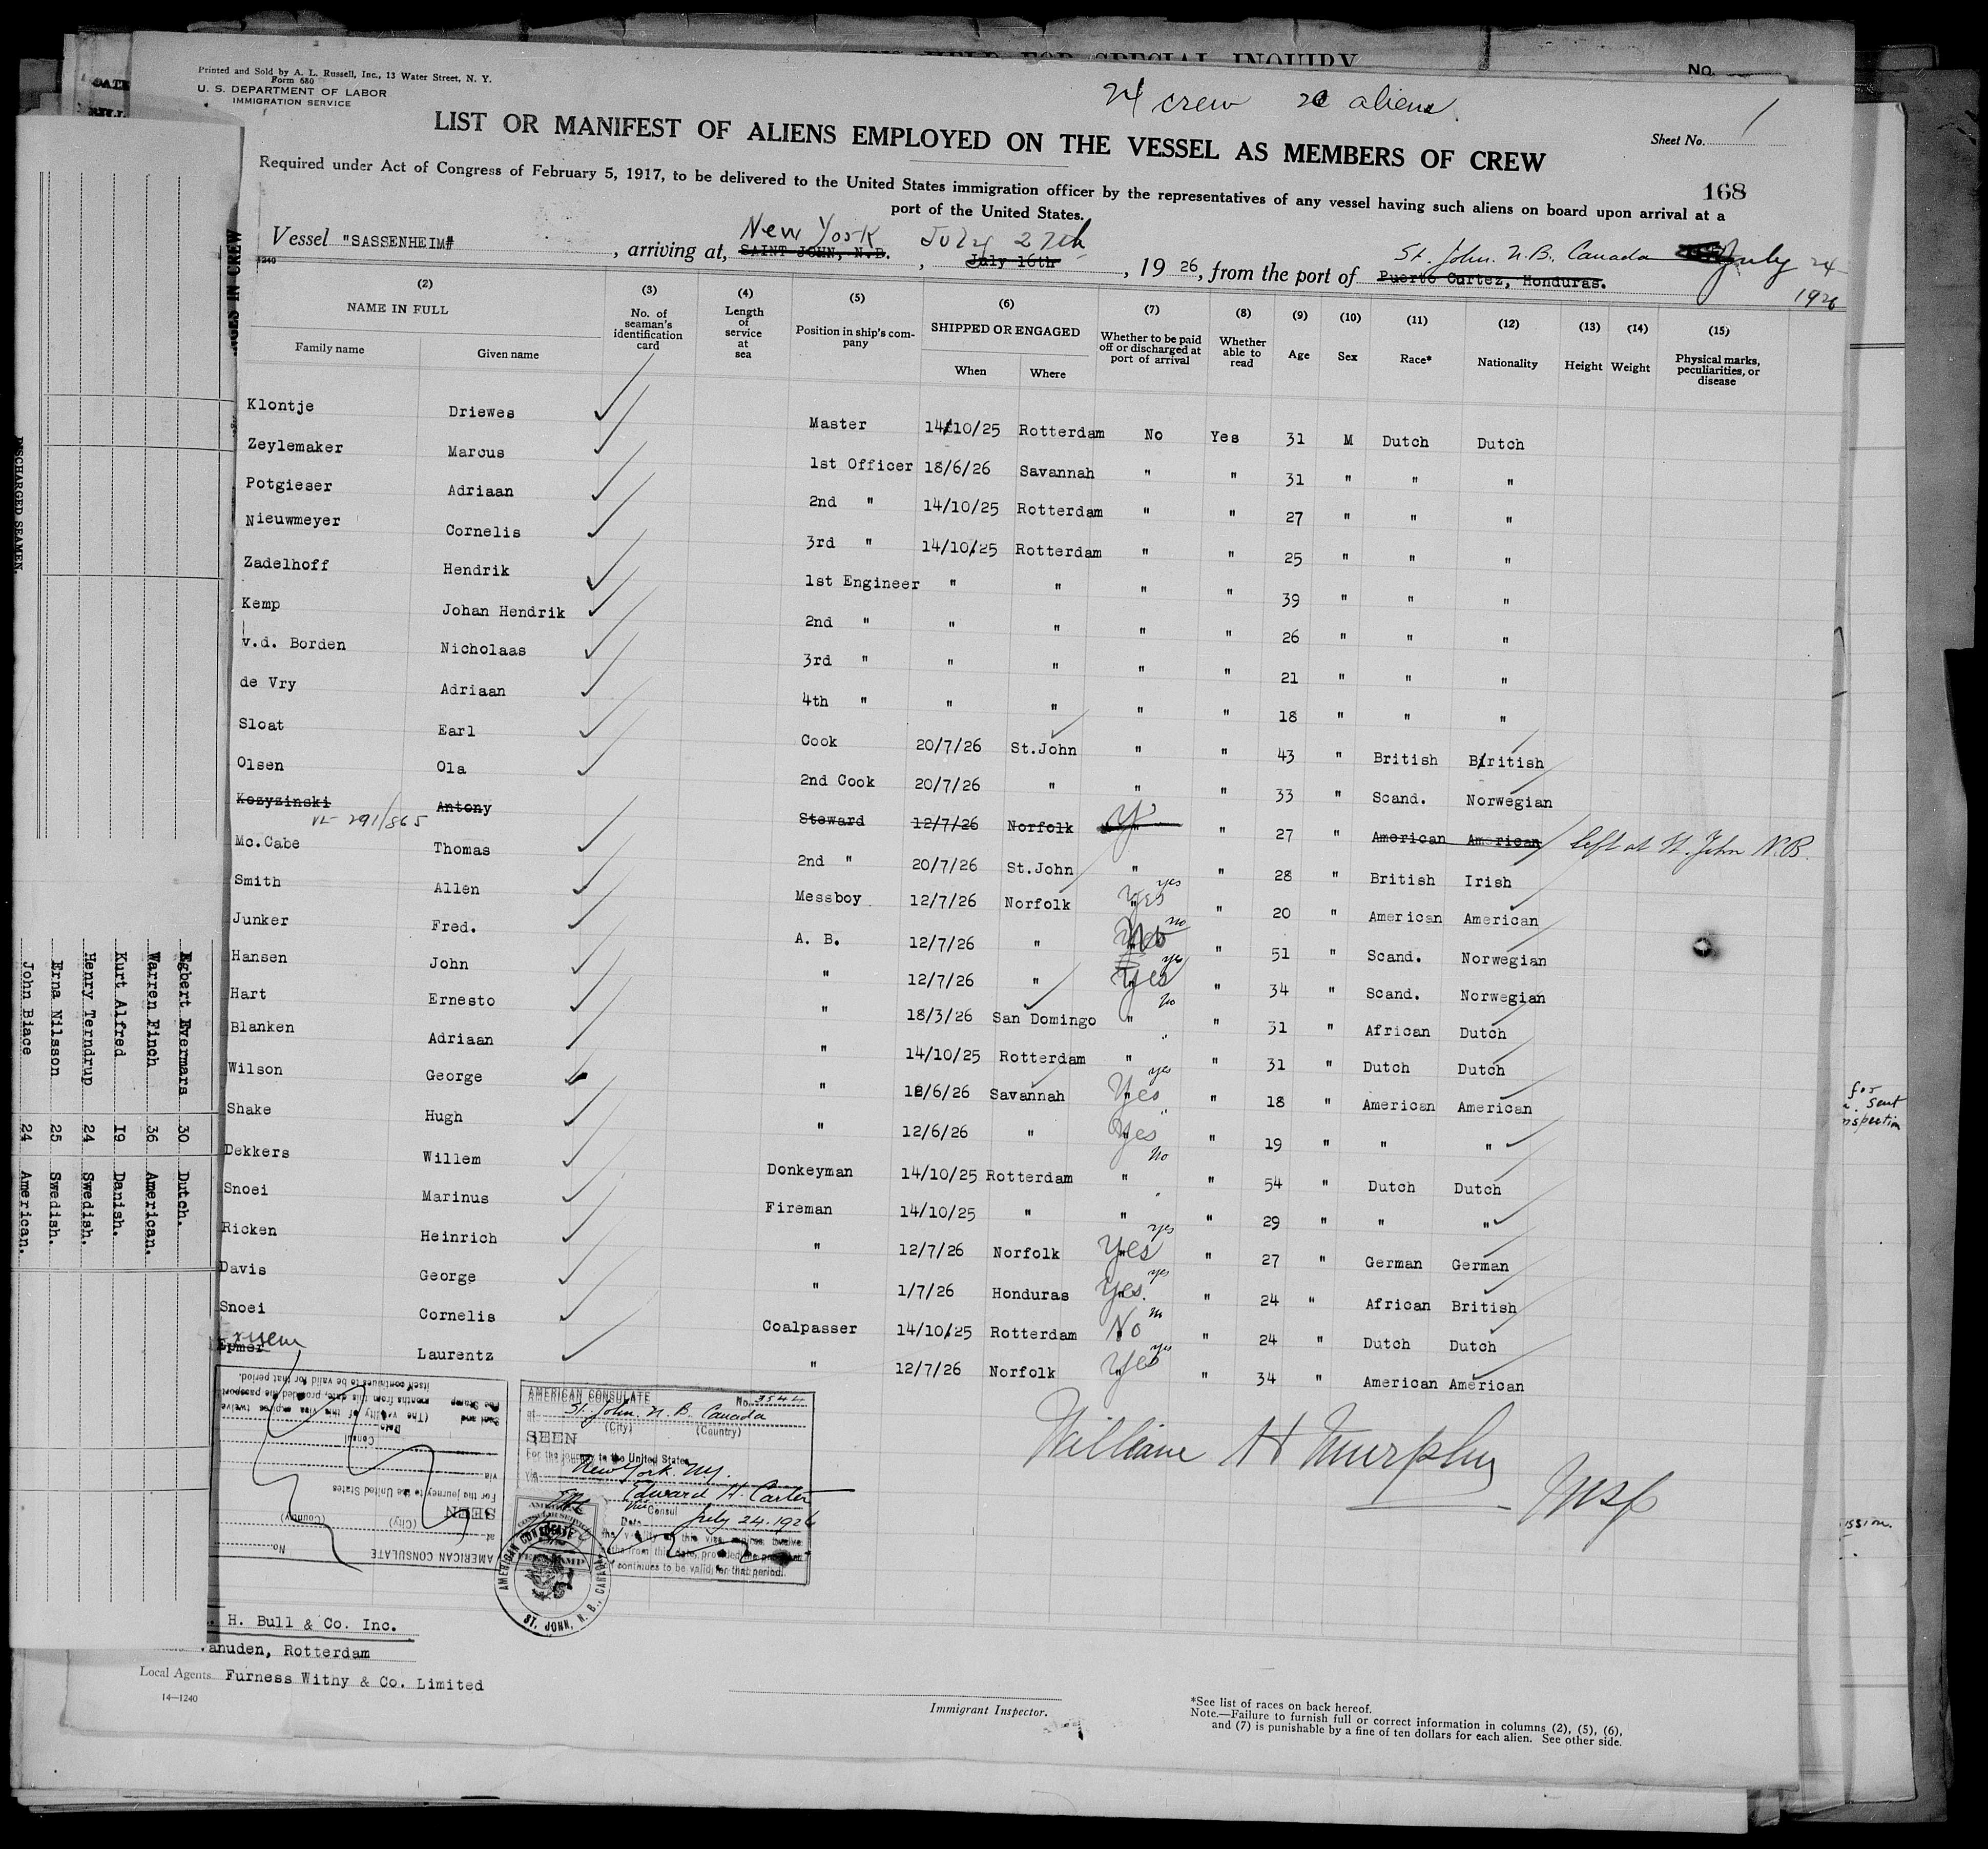 HELD FOR SPECIAL INQUIRY
No.
Printed and Sold by A. L. Russell, Inc., 13 Water Street, N. Y.
Form 680
U. S. DEPARTMENT OF LABOR
IMMIGRATION SERVICE
24 crew 20 aliens
LIST OR MANIFEST OF ALIENS EMPLOYED ON THE VESSEL AS MEMBERS OF CREW
Sheet No. 1
168
Required under Act of Congress of February 5, 1917, to be delivered to the United States immigration officer by the representatives of any vessel having such aliens on board upon arrival at a
port of the United States.
New York July 27th St. John. N.B. Canada July 24
Vessel "SASSENHEIM" , arriving at, SAINT JOHN, N.B. , July 16th , 19 26, from the port of Puerto Cortez, Honduras.
1926
1240
(2) (3) (4) (5) (6) (7) (8) (9) (10) (11) (12) (13) (14) (15)
NAME IN FULL No. of seaman's identification card Length of service at sea Position in ship's company SHIPPED OR ENGAGED Whether to be paid off or discharged at port of arrival Whether able to read Age Sex Race* Nationality Height Weight Physical marks, peculiarities, or disease
Family name Given name When Where
Klontje Driewes Master 14/10/25 Rotterdam No Yes 31 M Dutch Dutch
Zeylemaker Marcus 1st Officer 18/6/26 Savannah " " 31 " " "
Potgieser Adriaan 2nd " 14/10/25 Rotterdam " " 27 " " "
Nieuwmeyer Cornelis 3rd " 14/10/25 Rotterdam " " 25 " " "
Zadelhoff Hendrik 1st Engineer " " " " 39 " " "
Kemp Johan Hendrik 2nd " " " " " 26 " " "
v.d. Borden Nicholaas 3rd " " " " " 21 " " "
de Vry Adriaan 4th " " " " " 18 " " "
Sloat Earl Cook 20/7/26 St.John " " 43 " British British
Olsen Ola 2nd Cook 20/7/26 " " " 33 " Scand. Norwegian
Kozyzinski Antony Steward 12/7/26 Norfolk " " 27 " American American left at St. John N.B.
VL- 291/865
Mc.Cabe Thomas 2nd " 20/7/26 St.John " " 28 " British Irish
Smith Allen Messboy 12/7/26 Norfolk Yes yes " 20 " American American
Junker Fred. A. B. 12/7/26 " No no " 51 " Scand. Norwegian
Hansen John " 12/7/26 " Yes yes " 34 " Scand. Norwegian
Hart Ernesto " 18/3/26 San Domingo " no " 31 " African Dutch
Blanken Adriaan " 14/10/25 Rotterdam " " " 31 " Dutch Dutch
Wilson George " 18/6/26 Savannah Yes yes " 18 " American American
Shake Hugh " 12/6/26 " Yes " " 19 " " "
Dekkers Willem Donkeyman 14/10/25 Rotterdam " No " 54 " Dutch Dutch
Snoei Marinus Fireman 14/10/25 " " " " 29 " " "
Ricken Heinrich " 12/7/26 Norfolk Yes yes " 27 " German German
Davis George " 1/7/26 Honduras Yes. yes " 24 " African British
Snoei Cornelis Coalpasser 14/10/25 Rotterdam No " 24 " Dutch Dutch
Laurentz " 12/7/26 Norfolk Yes yes " 34 " American American
William H Murphy
AMERICAN CONSULATE No. 3544
at St. John. N. B. Canada
(City) (Country)
SEEN
For the journey to the United States
via New York. N.Y.
Edward H. Carter
Vice Consul
Date July 24. 1926
The validity of this visa expires twelve
months from this date, provided the passport
continues to be valid for that period.
AMERICAN CONSULATE
ST. JOHN, N. B., CANADA
AMERICAN CONSULATE No.
at
(City) (Country)
SEEN
For the journey to the United States
via
Consul
Date
(The validity of this visa expires twelve
months from this date, provided the passport
itself continues to be valid for that period.
Seal and
Fee Stamp
H. Bull & Co. Inc.
Rotterdam
Local Agents Furness Withy & Co. Limited
14—1240
Immigrant Inspector.
*See list of races on back hereof.
Note.—Failure to furnish full or correct information in columns (2), (5), (6),
and (7) is punishable by a fine of ten dollars for each alien. See other side.
IN CREW
DISCHARGED SEAMEN.
Egbert Evermars 30 Dutch.
Warren Finch 36 American.
Kurt Alfred 19 Danish.
Henry Terndrup 24 Swedish.
Erna Nilsson 25 Swedish.
John Biace 24 American.
for
sent